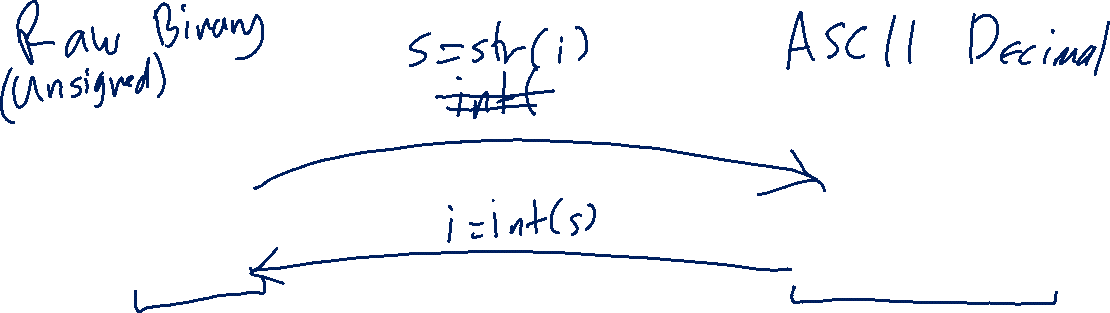 Raw Binary
(Unsigned)
s=str(i)
int(
ASCII Decimal
i=int(s)